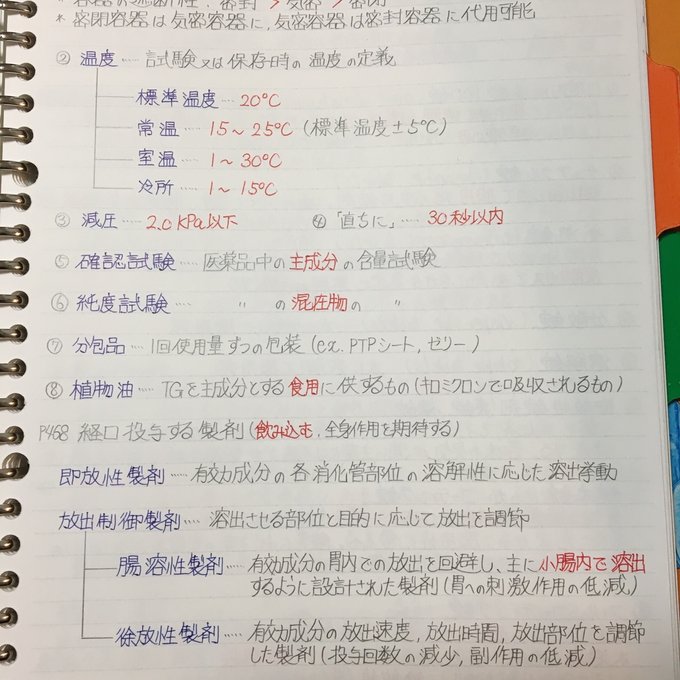 * 容器の遮断性：密封 > 気密 > 密閉
* 密閉容器は気密容器に，気密容器は密封容器に代用可能
② 温度…… 試験又は保存時の温度の定義
標準温度… 20℃
常温…… 15～25℃ (標準温度±5℃)
室温…… 1～30℃
冷所…… 1～15℃
③ 減圧…… 2.0 kPa以下 ④「直ちに」…… 30秒以内
⑤ 確認試験…… 医薬品中の主成分の含量試験
⑥ 純度試験…… 〃 の混在物の 〃
⑦ 分包品… 1回使用量ずつの包装 (ex. PTPシート，ゼリー)
⑧ 植物油… TGを主成分とする食用に供するもの (キロミクロンで吸収されるもの)
P468 経口投与する製剤 (飲み込む，全身作用を期待する)
即放性製剤…… 有効成分の各消化管部位の溶解性に応じた溶出挙動
放出制御製剤…… 溶出させる部位と目的に応じて放出を調節
腸溶性製剤…… 有効成分の胃内での放出を回避し，主に小腸内で溶出
するように設計された製剤 (胃への刺激作用の低減)
徐放性製剤…… 有効成分の放出速度，放出時間，放出部位を調節
した製剤 (投与回数の減少，副作用の低減)